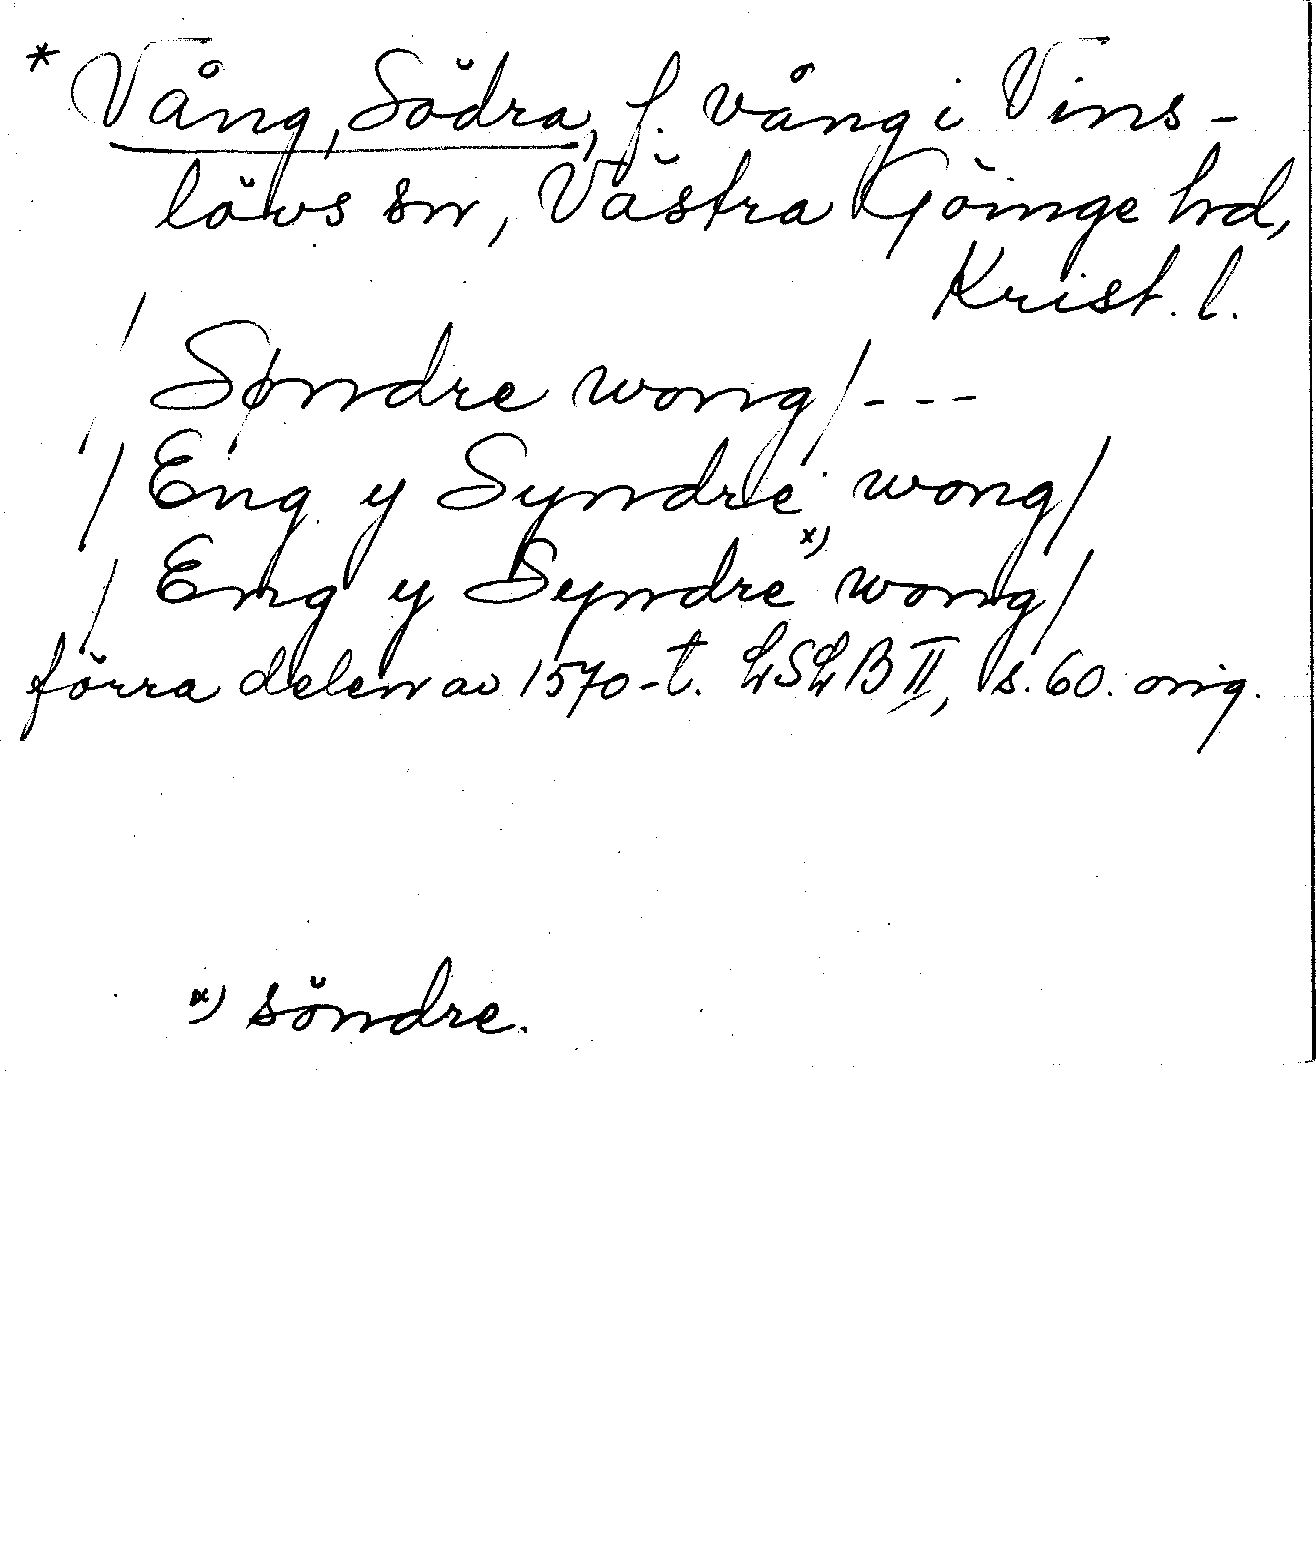 * Vång, Södra, f. vång i Vins-
lövs sn, Västra Göinge hd,
Krist. l.
/ Søndre wong / - - -
/ Eng y Syndre wong /
/ Eng y Syndre x) wong /
förra delen av 1570-t. LSLB II, s. 60. orig.
x) söndre.